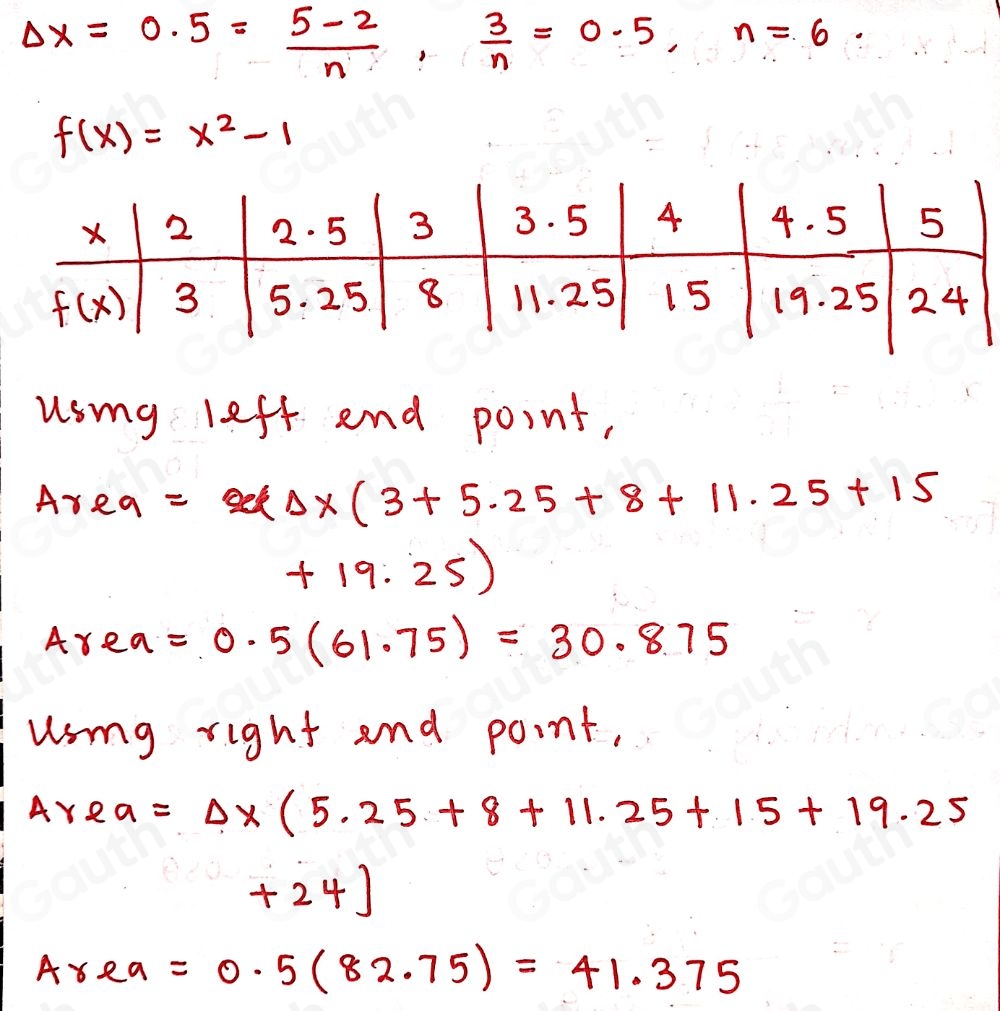 Δx = 0.5 = (5-2)/n , 3/n = 0.5, n = 6.
f(x) = x² - 1
x | 2 | 2.5 | 3 | 3.5 | 4 | 4.5 | 5
f(x) | 3 | 5.25 | 8 | 11.25 | 15 | 19.25 | 24
Using left end point,
Area = Δx(3 + 5.25 + 8 + 11.25 + 15
+ 19.25)
Area = 0.5(61.75) = 30.875
Using right end point,
Area = Δx(5.25 + 8 + 11.25 + 15 + 19.25
+ 24]
Area = 0.5(82.75) = 41.375
Gauth